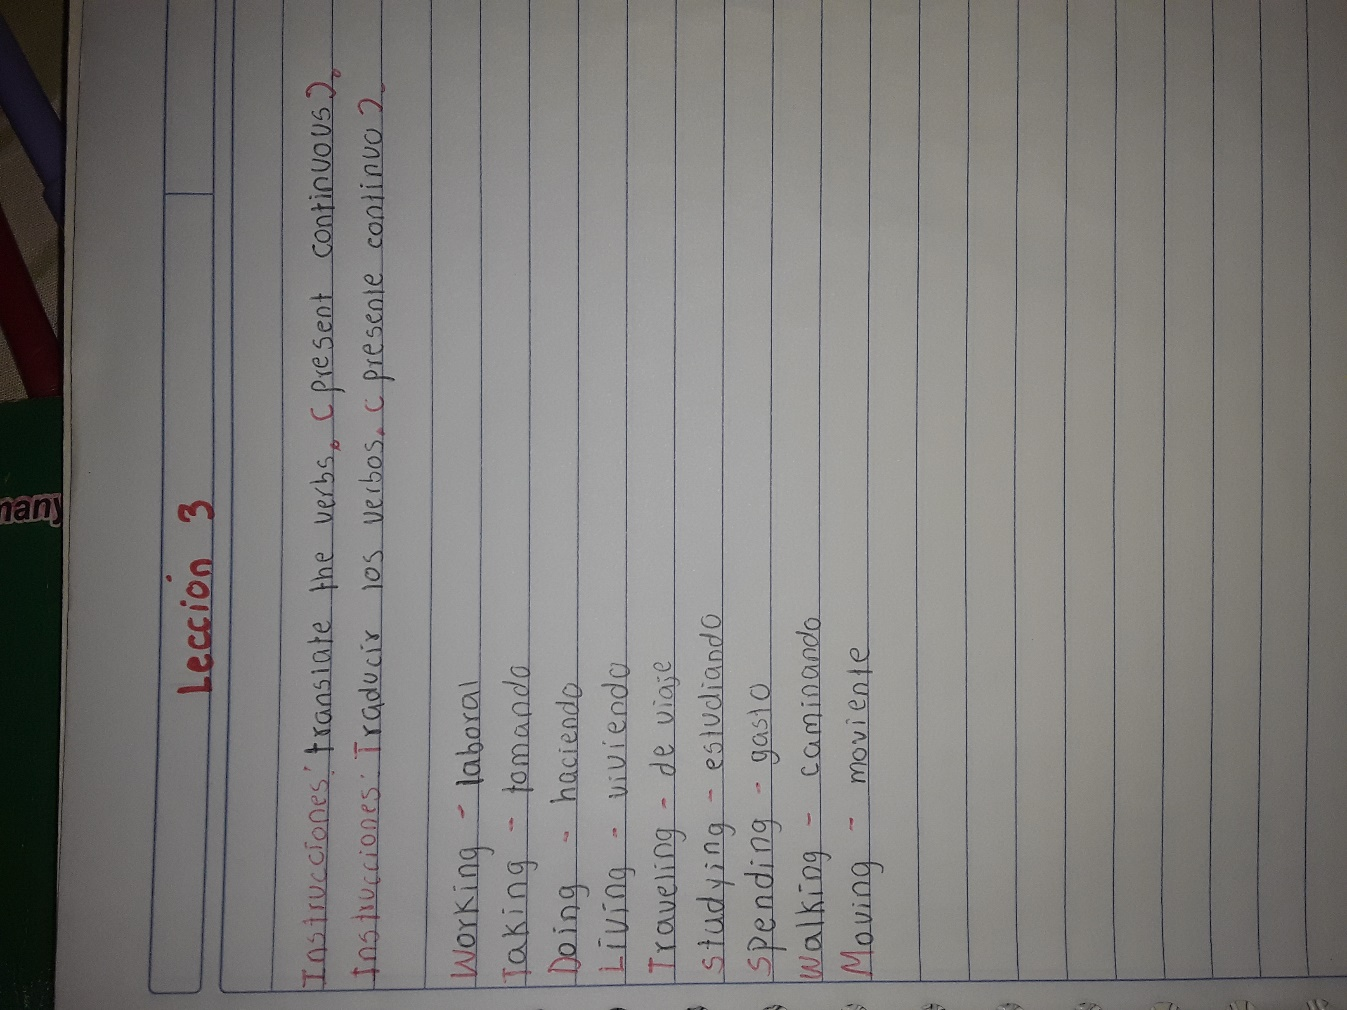 Leccion 3
Instrucciones: translate the verbs. (present continuous).
Instrucciones: Traducir los verbos. (presente continuo).
Working - laboral
Taking - tomando
Doing - haciendo
Living - viviendo
Traveling - de viaje
studying - estudiando
spending - gasto
walking - caminando
Moving - moviente
many